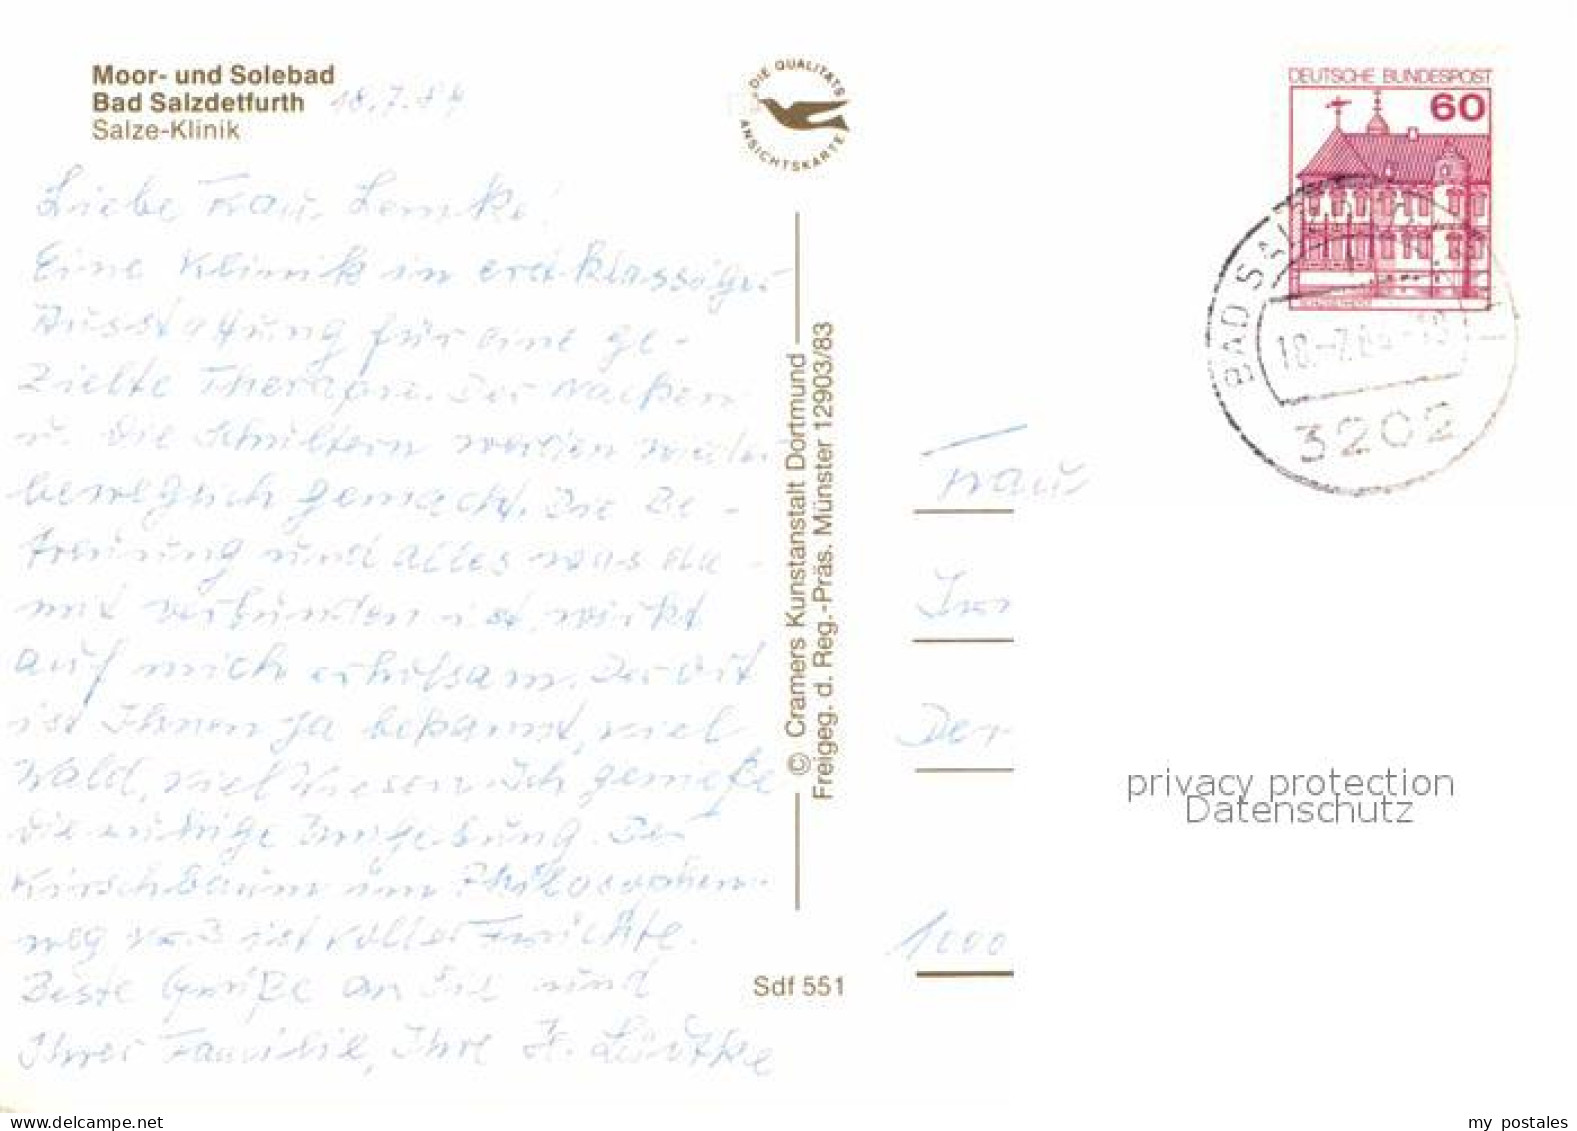 Moor- und Solebad
Bad Salzdetfurth 18.7.84
Salze-Klinik
DIE QUALITÄTS
ANSICHTSKARTE
DEUTSCHE BUNDESPOST
60
BAD SALZ
18.-7.84-19
3202
Liebe Frau Lemke!
Eine Klinik in erstklassiger
Ausstattung für eine ge-
zielte Therapie. Der Nacken
u. die Schultern werden wieder
beweglich gemacht. Die Be-
treuung und alles was da-
mit verbunden ist, wirkt
auf mich erholsam. Der Ort
ist Ihnen ja bekannt, viel
Wald, viel Wiesen. Ich genieße
die ruhige Umgebung. Der
Kirschbaum im Philosophen-
weg ist voller Früchte.
Beste Grüße an Sie und
Ihrer Familie, Ihre H. Lüdtke
© Cramers Kunstanstalt Dortmund
Freigeg. d. Reg.-Präs. Münster 12903/83
Sdf 551
Frau
1000
privacy protection
Datenschutz
delcampe.net
my_postales